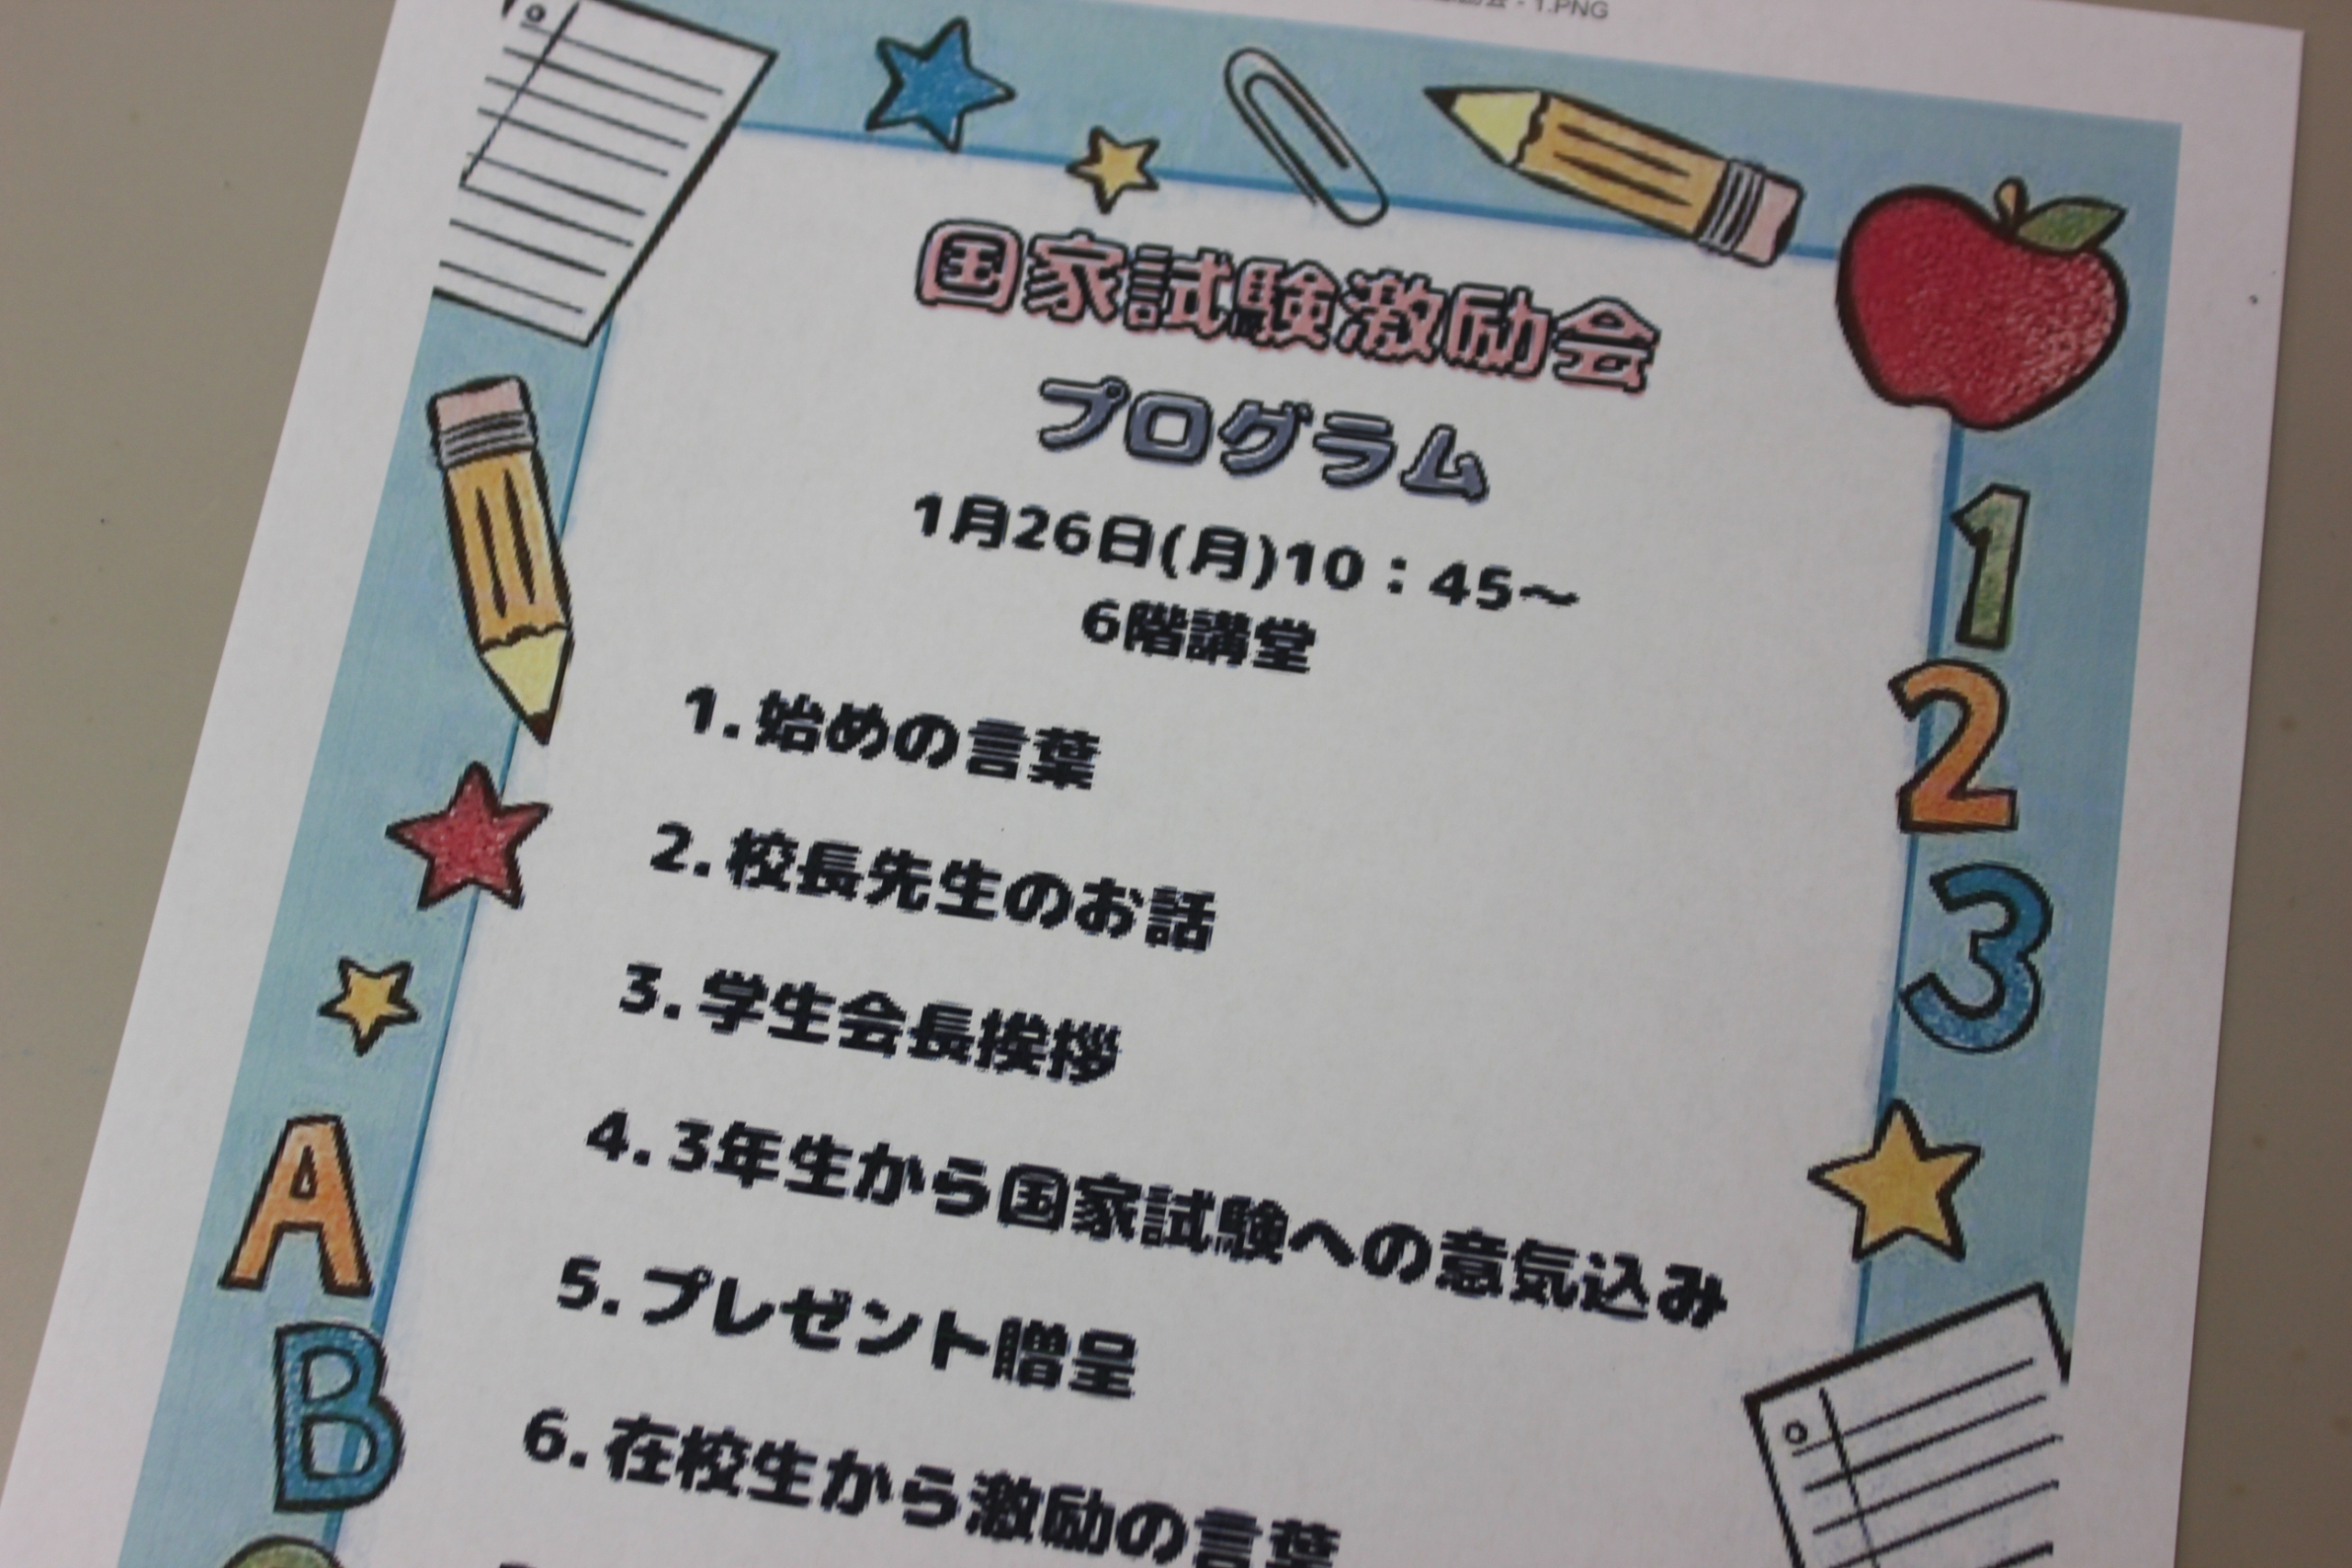 - 1.PNG
国家試験激励会
プログラム
1月26日(月)10：45～
6階講堂
1.始めの言葉
2.校長先生のお話
3.学生会長挨拶
4.3年生から国家試験への意気込み
5.プレゼント贈呈
6.在校生から激励の言葉
1
2
3
A
B